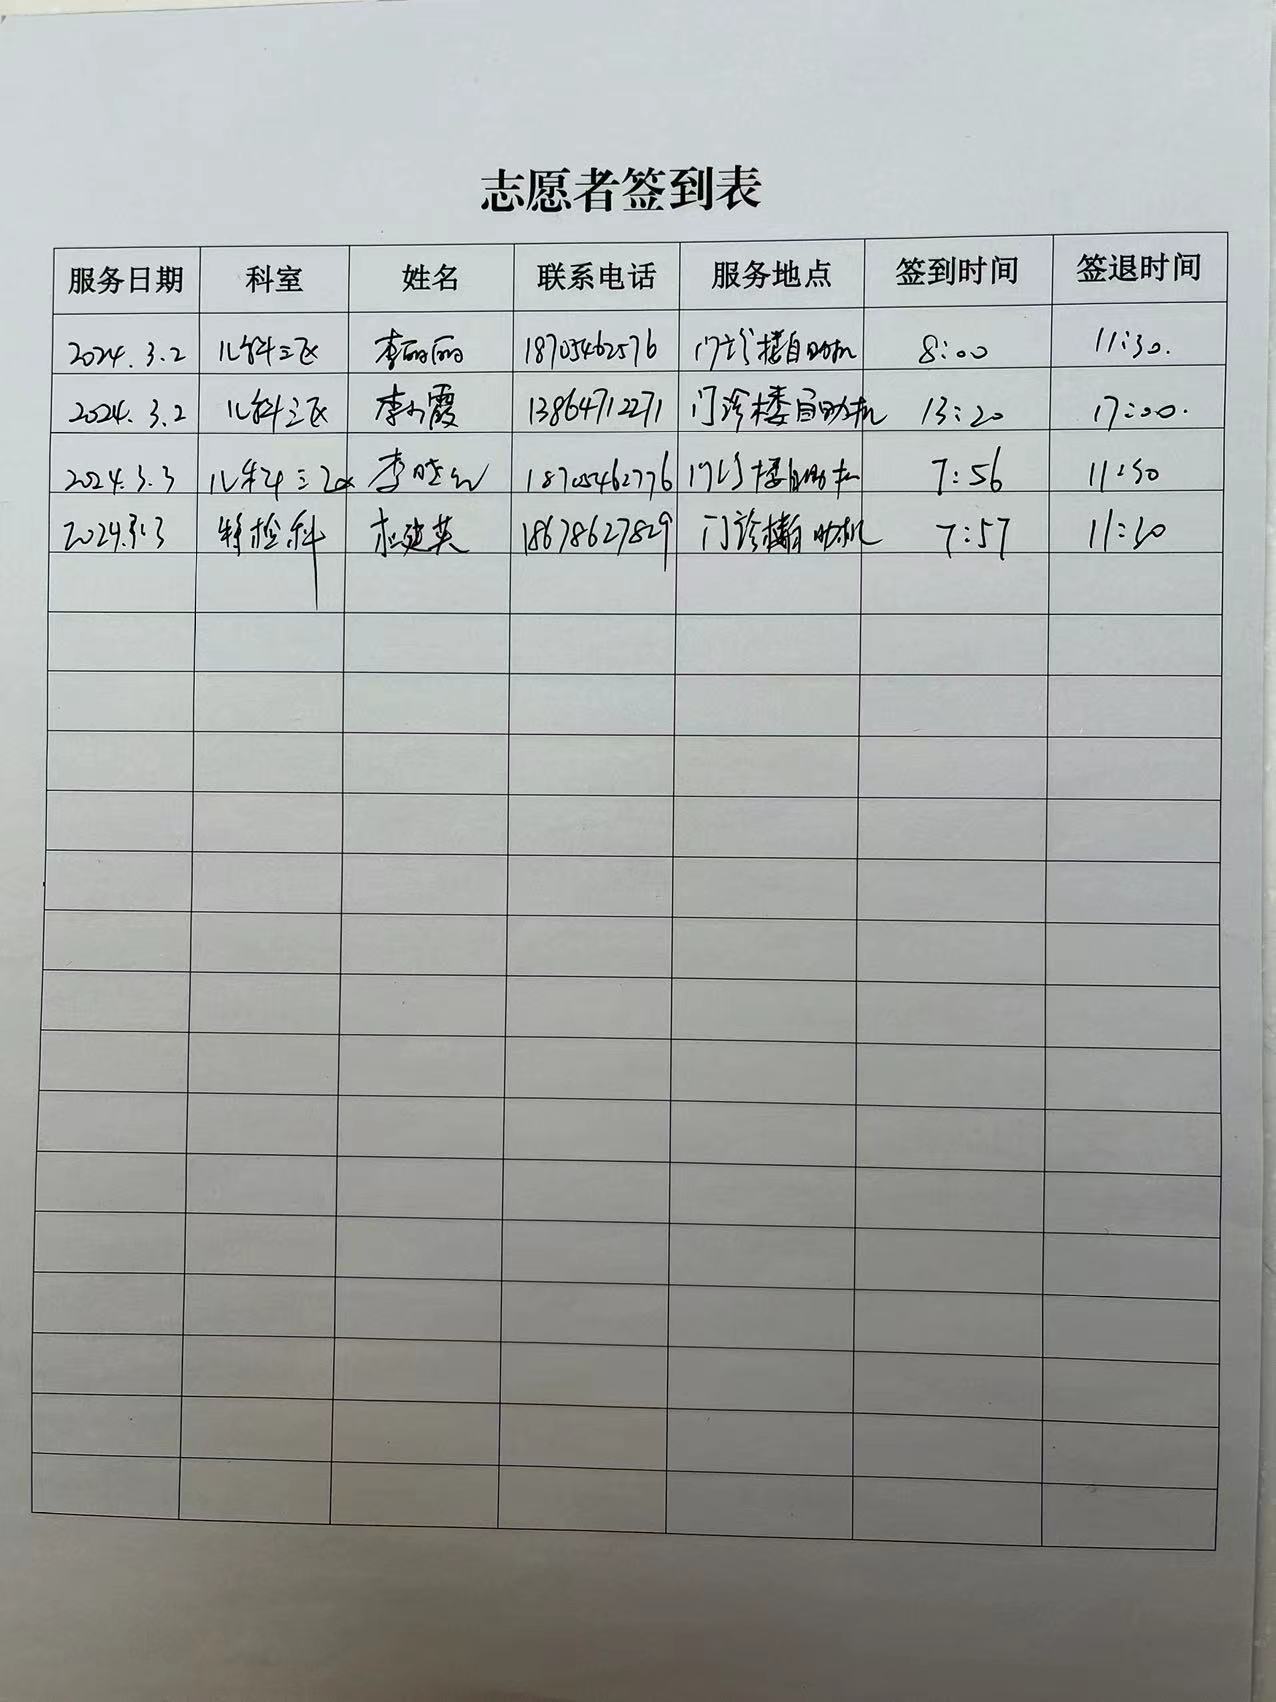 志愿者签到表
服务日期 科室 姓名 联系电话 服务地点 签到时间 签退时间
2024.3.2 儿科三区 李丽丽 18705462576 门诊楼自助机 8:00 11:30.
2024.3.2 儿科三区 李小霞 13864712271 门诊楼自助机 13:20 17:00.
2024.3.3 儿科三区 李晓 18705462776 门诊楼自助机 7:56 11:30
2024.3.3 特检科 杜建英 18678627829 门诊楼自助机 7:57 11:30